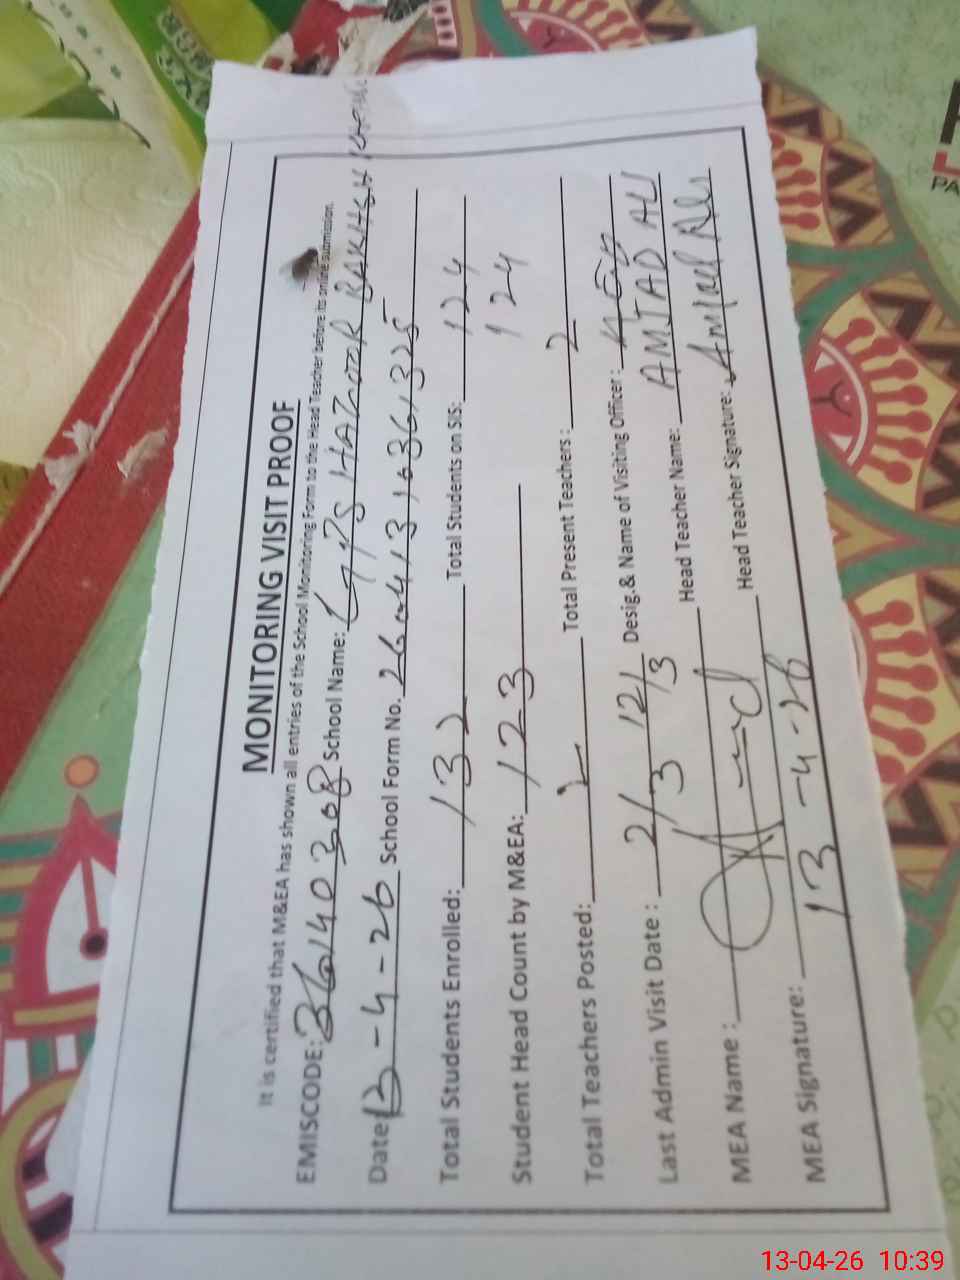 MONITORING VISIT PROOF
It is certified that M&EA has shown all entries of the School Monitoring Form to the Head Teacher before its online submission.
EMISCODE: 36140308 School Name: GPS HAZOOR BAKHSH
Date: 13-4-26 School Form No. 26041316361325
Total Students Enrolled: 132 Total Students on SIS: 124
Student Head Count by M&EA: 123 124
Total Teachers Posted: 2 Total Present Teachers: 2
Last Admin Visit Date: 2/3 12/3 Desig.& Name of Visiting Officer:
MEA Name: Head Teacher Name: AMJAD ALI
MEA Signature: 13-4-26 Head Teacher Signature: Amjad Ali
PA
13-04-26 10:39